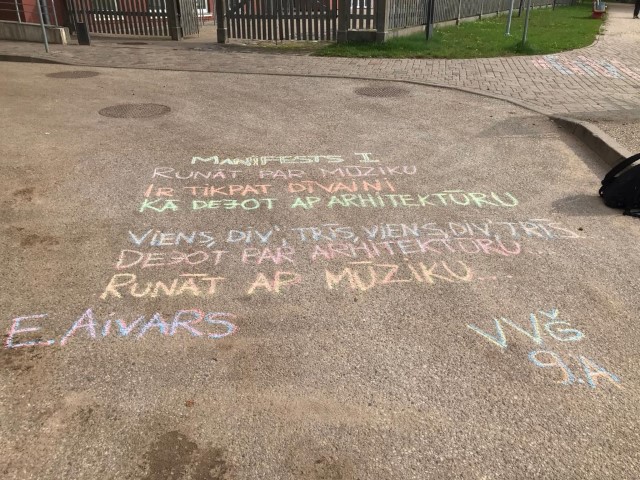 MANIFESTS I
RUNĀT PAR MŪZIKU
IR TIKPAT DĪVAINI
KĀ DEJOT AP ARHITEKTŪRU
VIENS, DIVI, TRĪS, VIENS, DIVI, TRĪS
DEJOT PAR ARHITEKTŪRU...
RUNĀT AP MŪZIKU...
E. AIVARS
VVĢ
9.A